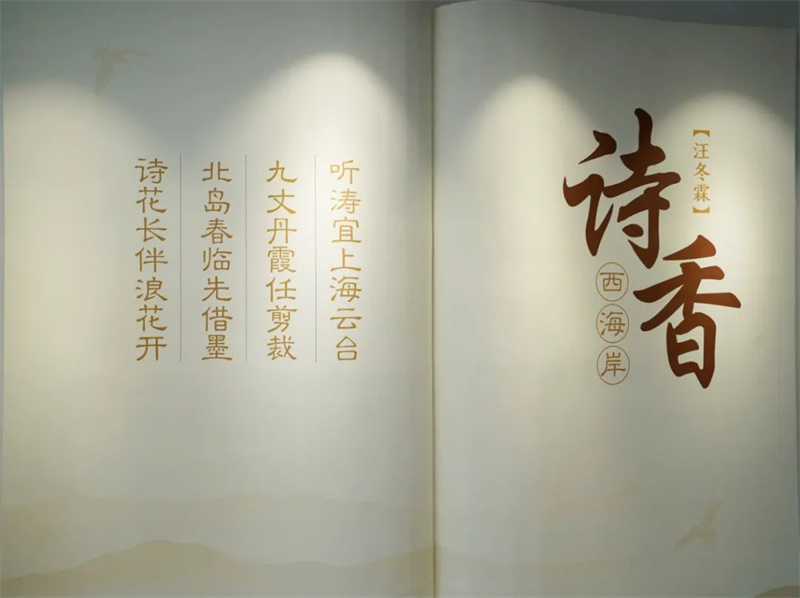 【汪冬霖】
诗香
西海岸
听涛宜上海云台
九丈丹霞任剪裁
北岛春临先借墨
诗花长伴浪花开